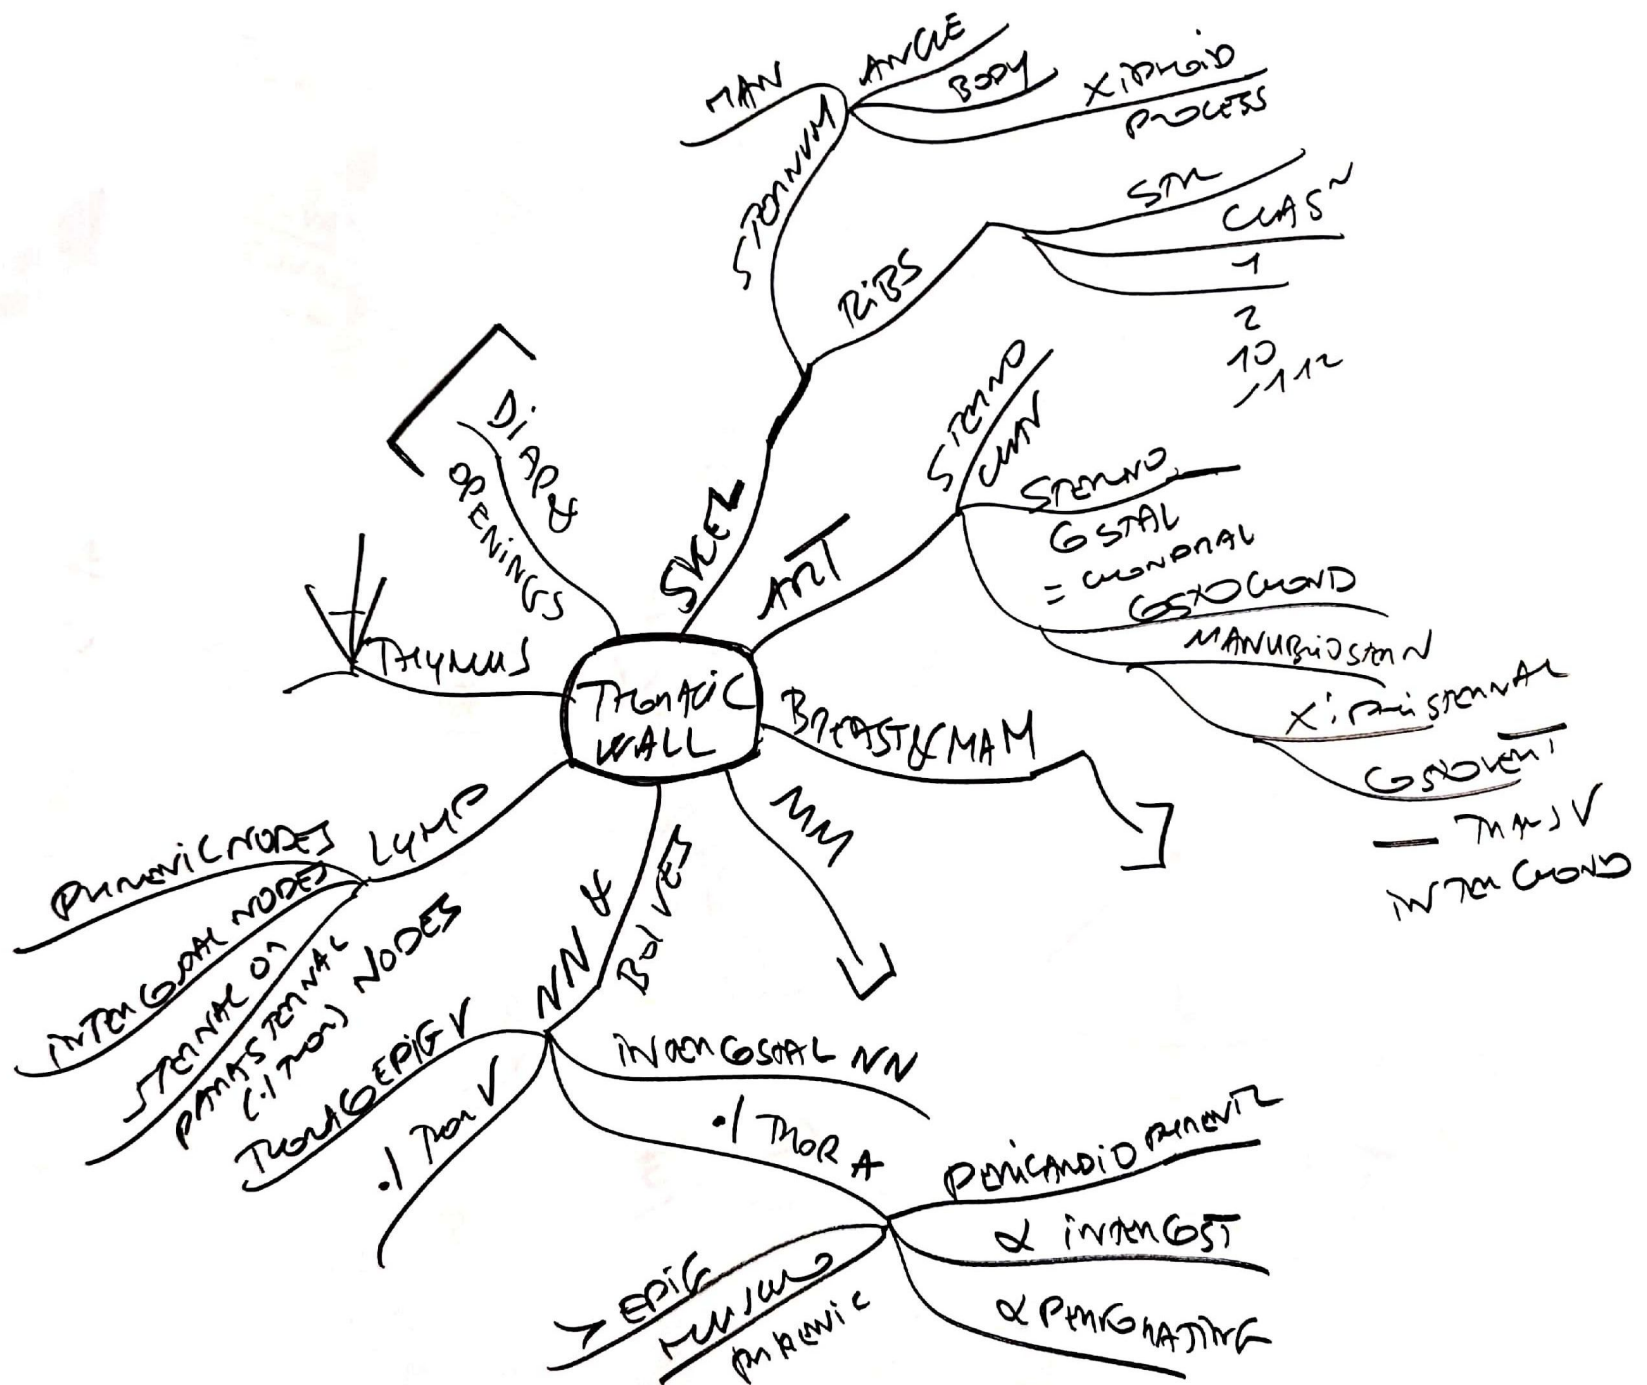 THORACIC
WALL
SKEL
STERNUM
MAN
ANGLE
BODY
XIPHOID
PROCESS
RIBS
STR
CLAS N
1
2
10
11 12
ART
STERNO
CLAV
STERNO
COSTAL
= CHONDRAL
COSTOCHOND
MANUBRIOSTERN
XIPHISTERNAL
COSTOVERT
— TRANSV
INTERCHOND
BREAST & MAM
MM
NN &
BOL VES
INTERCOSTAL NN
./ THOR A
PERICARDIOPHRENIC
α INTERCOST
α PERFORATING
> EPIG
MUSCULO
PHRENIC
./ THOR V
THORACOEPIG V
LYMP
PHRENIC NODES
INTERCOSTAL NODES
STERNAL OR
PARASTERNAL
(./ THOR) NODES
THYMUS
DIAP &
OPENINGS